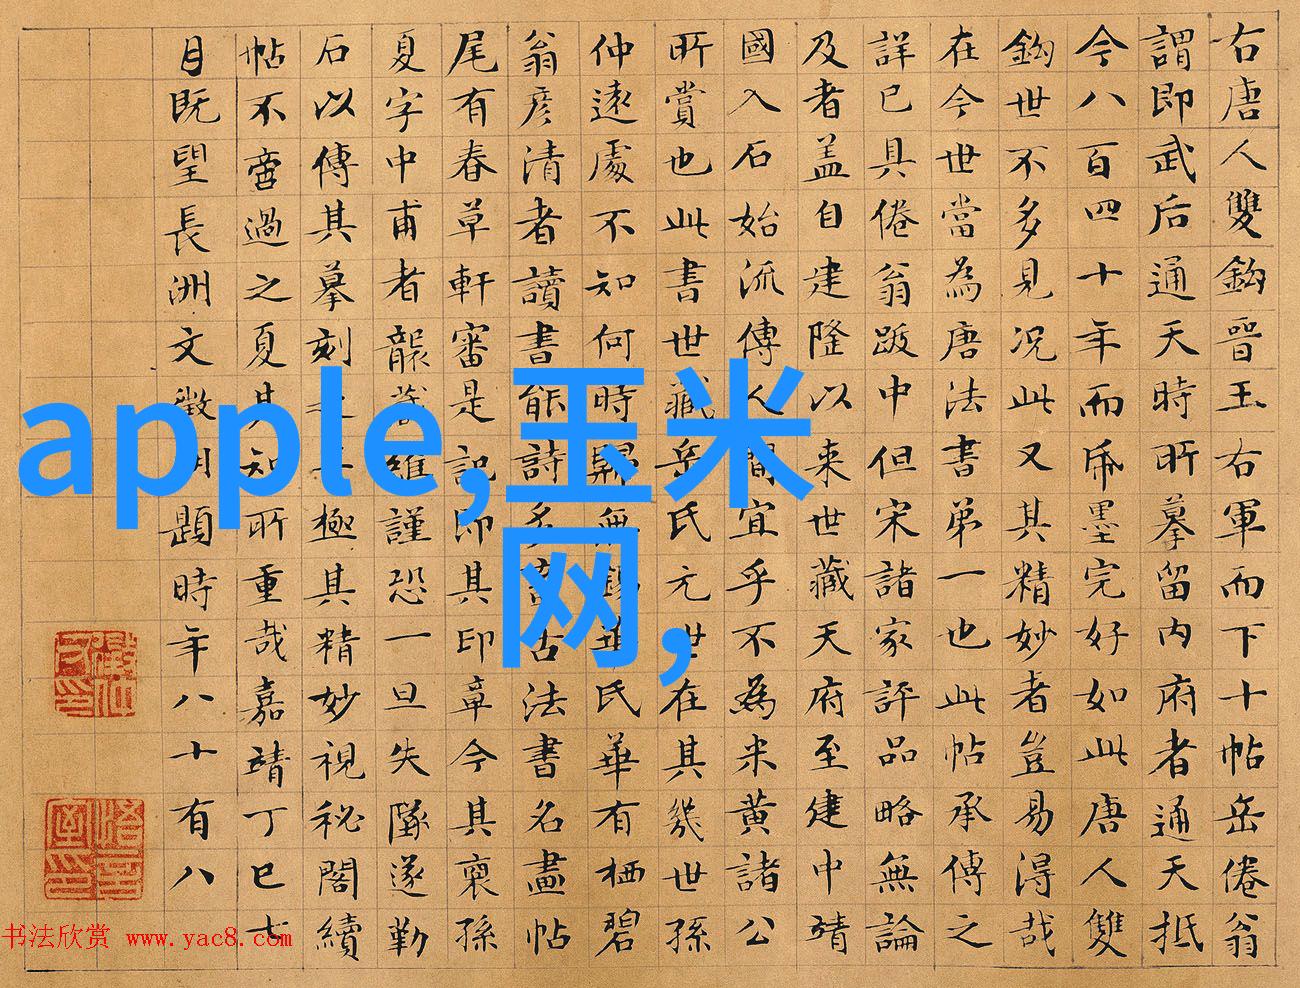 右唐人雙鈎晉王右軍而下十帖岳倦翁
謂即武后通天時所摹留內府者通天抵
今八百四十年而帋墨完好如此唐人雙
鈎世不多見况此又其精妙者豈易得哉
在今世當為唐法書第一也此帖承傳之
詳已具倦翁跋中但宋諸家評品略無論
及者盖自建隆以来世藏天府至建中靖
國入石始流傳人間宜乎不為米黃諸公
所賞也此書世藏岳氏元世在其幾世孫
仲遠處不知何時歸無錫華氏華有栖碧
翁彦清者讀書能詩多蓄古法書名畫帖
尾有春草軒審是記即其印章今其裔孫
夏字中甫者襲藏維謹恐一旦失墜遂勒
石以傳其摹刻極其精妙視秘閣續
帖不啻過之夏其知所重哉嘉靖丁巳七
月既望長洲文徵明題時年八十有八
apple,玉米
网,
书法欣赏 www.yac8.com